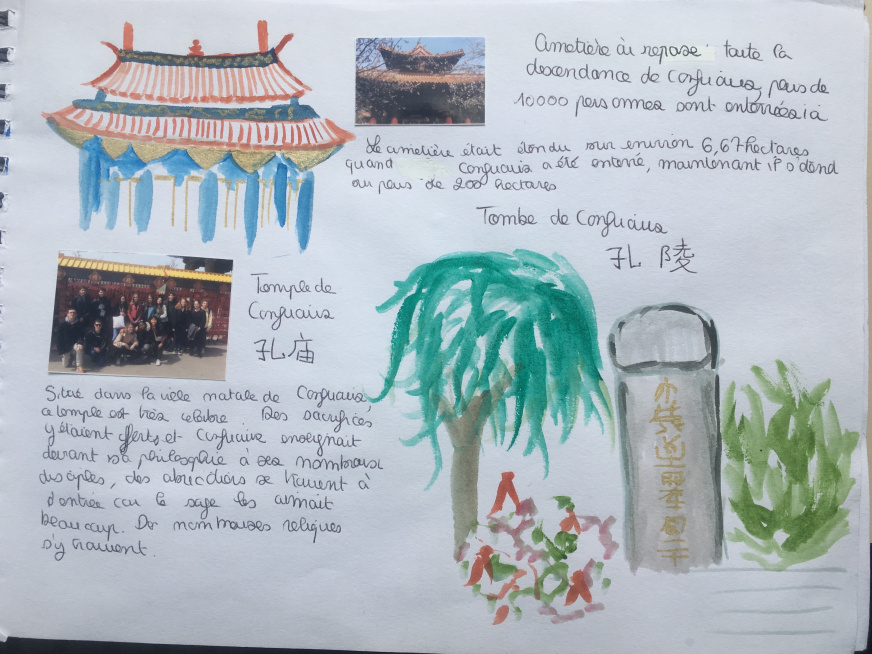 Cimetière où repose toute la
descendance de Confucius, plus de
10000 personnes sont enterrées ici
Le cimetière était étendu sur environ 6,67 hectares
quand Confucius a été enterré, maintenant il s'étend
sur plus de 200 hectares
Tombe de Confucius
孔 陵
Temple de
Confucius
孔庙
Situé dans la ville natale de Confucius,
ce temple est très célèbre. Des sacrifices
y étaient offerts et Confucius enseignait
devant sa philosophie à ses nombreux
disciples, des se trouvent à
l'entrée car le sage les aimait
beaucoup. De nombreuses reliques
s'y trouvent.